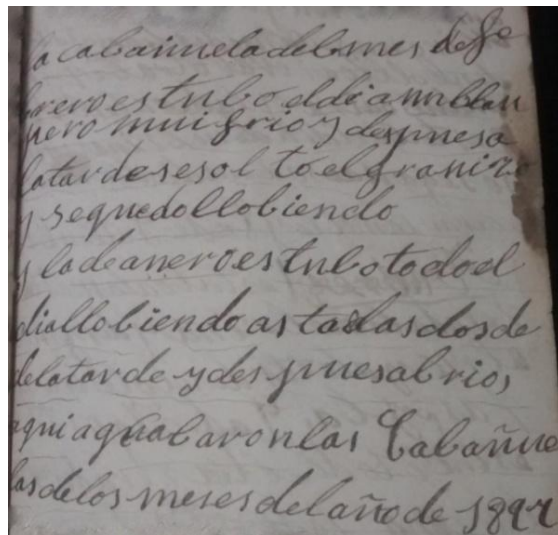 la cabañuela del mes de fe
brero estubo el dia nublau
pero mui frio y despues a
la tarde se sol to el granizo
y se quedo llobiendo
y la de anero estubo todo el
dia llobiendo asta las dos de
de la tarde y des pues abrios,
aqui aquabaron las Cabañue
las de los meses del año de